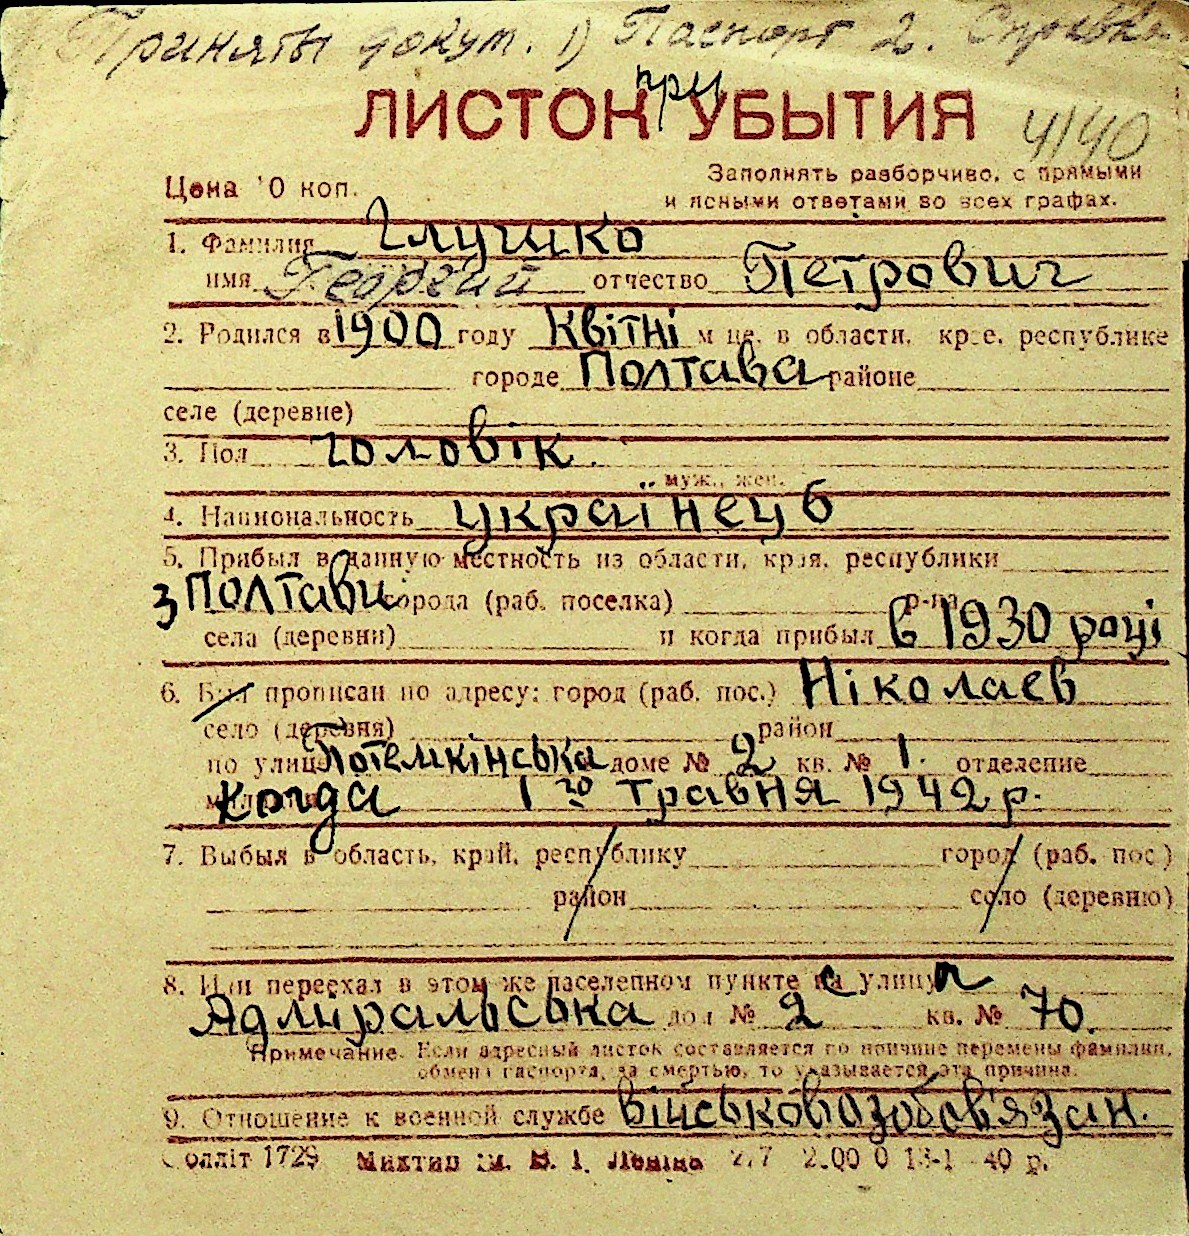 Приняты докум. 1) Паспорт 2. Справка
при
ЛИСТОК УБЫТИЯ
4140
Цена 10 коп.
Заполнять разборчиво, с прямыми
и ясными ответами во всех графах.
1. Фамилия Глушко
имя Георгий отчество Петрович
2. Родился в 1900 году Квітні м-це, в области, крае, республике
городе Полтава районе
селе (деревне)
3. Пол чоловік.
муж., жен.
4. Национальность українець
5. Прибыл в данную местность из области, края, республики
з Полтави города (раб. поселка) р-на
села (деревни) и когда прибыл в 1930 році
6. Был прописан по адресу: город (раб. пос.) Ніколаев
село (деревня) район
по улице Потемкінська доме № 2 кв. № 1. отделение
Когда 1го травня 1942 р.
7. Выбыл в область, край, республику город (раб. пос.)
район село (деревню)
8. Или переехал в этом же населенном пункте с улицы
Адміральська дом № 2 кв. № 70.
Примечание. Если адресный листок составляется по причине перемены фамилии,
обмена паспорта, за смертью, то указывается эта причина.
9. Отношение к военной службе військовозобов'язан.
Солліт 1729 Миктип ім. В. І. Леніна 40 р.